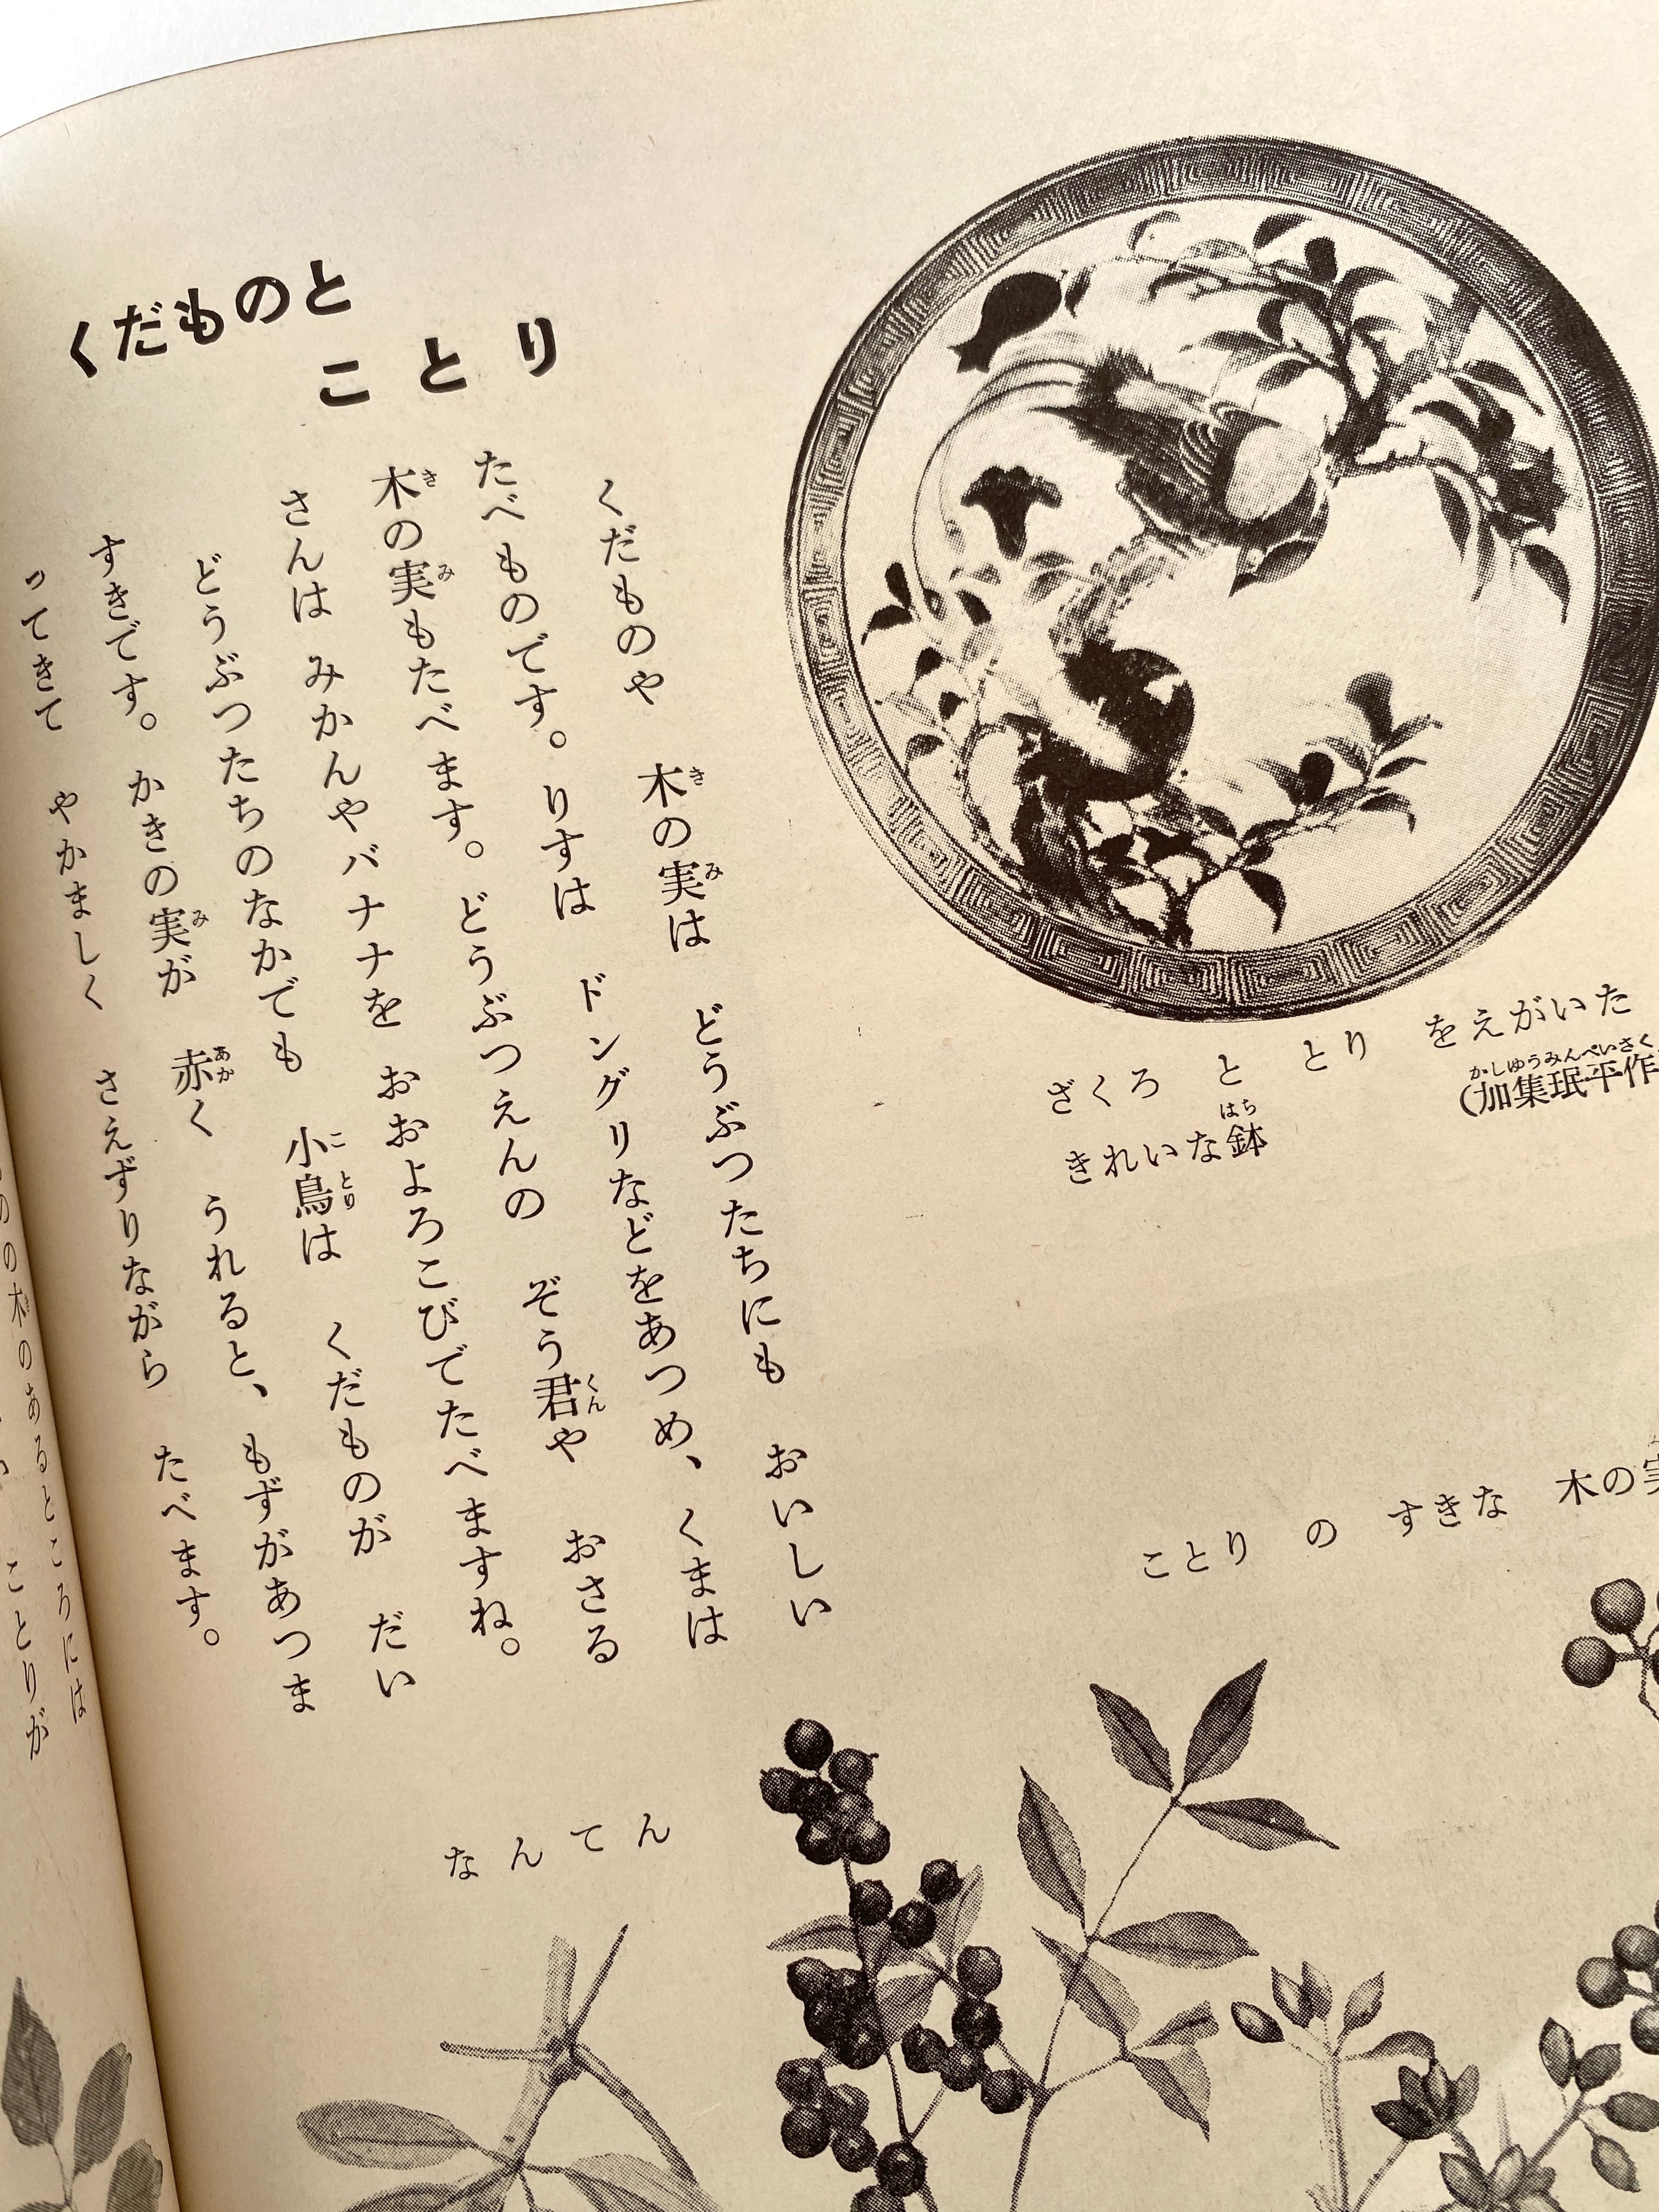 くだものと
ことり
ざくろ と とり をえがいた
きれいな鉢
(加集珉平作
くだものや 木の実は どうぶつたちにも おいしい
たべものです。りすは ドングリなどをあつめ、くまは
木の実もたべます。どうぶつえんの ぞう君や おさる
さんは みかんやバナナを おおよろこびでたべますね。
どうぶつたちのなかでも 小鳥は くだものが だい
すきです。かきの実が 赤く うれると、もずがあつま
ってきて やかましく さえずりながら たべます。
ことり の すきな 木の実
なんてん
の木のあるところには
ことりが